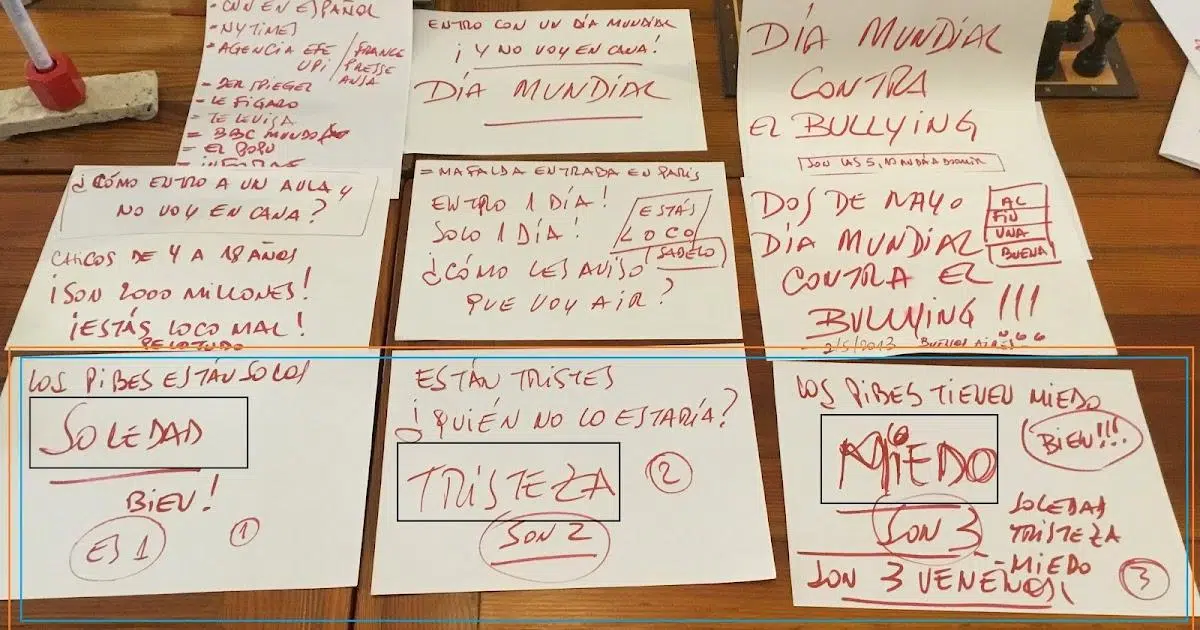 - CNN EN ESPAÑOL
- NYTIMES
- AGENCIA EFE / FRANCE
UPI / PRESSE
ANSA
- DER SPIEGEL
- LE FÍGARO
- TELEVISA
= BBC MUNDO
= EL
ENTRO CON UN DÍA MUNDIAL
¡Y NO VOY EN CANA!
DÍA MUNDIAL
DÍA MUNDIAL
CONTRA
EL BULLYING
SON LAS 5, NO
¿CÓMO ENTRO A UN AULA Y
NO VOY EN CANA?
CHICOS DE 4 A 18 AÑOS
¡SON 2000 MILLONES!
¡ESTÁS LOCO MAL!
PELOTUDO
= MAFALDA ENTRADA EN PARÍS
ENTRO 1 DÍA!
SOLO 1 DÍA!
ESTÁS
LOCO
SABELO
¿CÓMO LES AVISO
QUE VOY A IR?
DOS DE MAYO
DÍA MUNDIAL
CONTRA EL
BULLYING!!!
AL
FIN
UNA
BUENA
2/5/2013 BUENOS AIRES
LOS PIBES ESTÁN SOLOS
SOLEDAD
BIEN!
ES 1
1
ESTÁN TRISTES
¿QUIÉN NO LO ESTARÍA?
TRISTEZA
2
SON 2
LOS PIBES TIENEN MIEDO
BIEN!!!
MIEDO
SON 3
SOLEDAD
TRISTEZA
- MIEDO
SON 3 VENENOS!
3